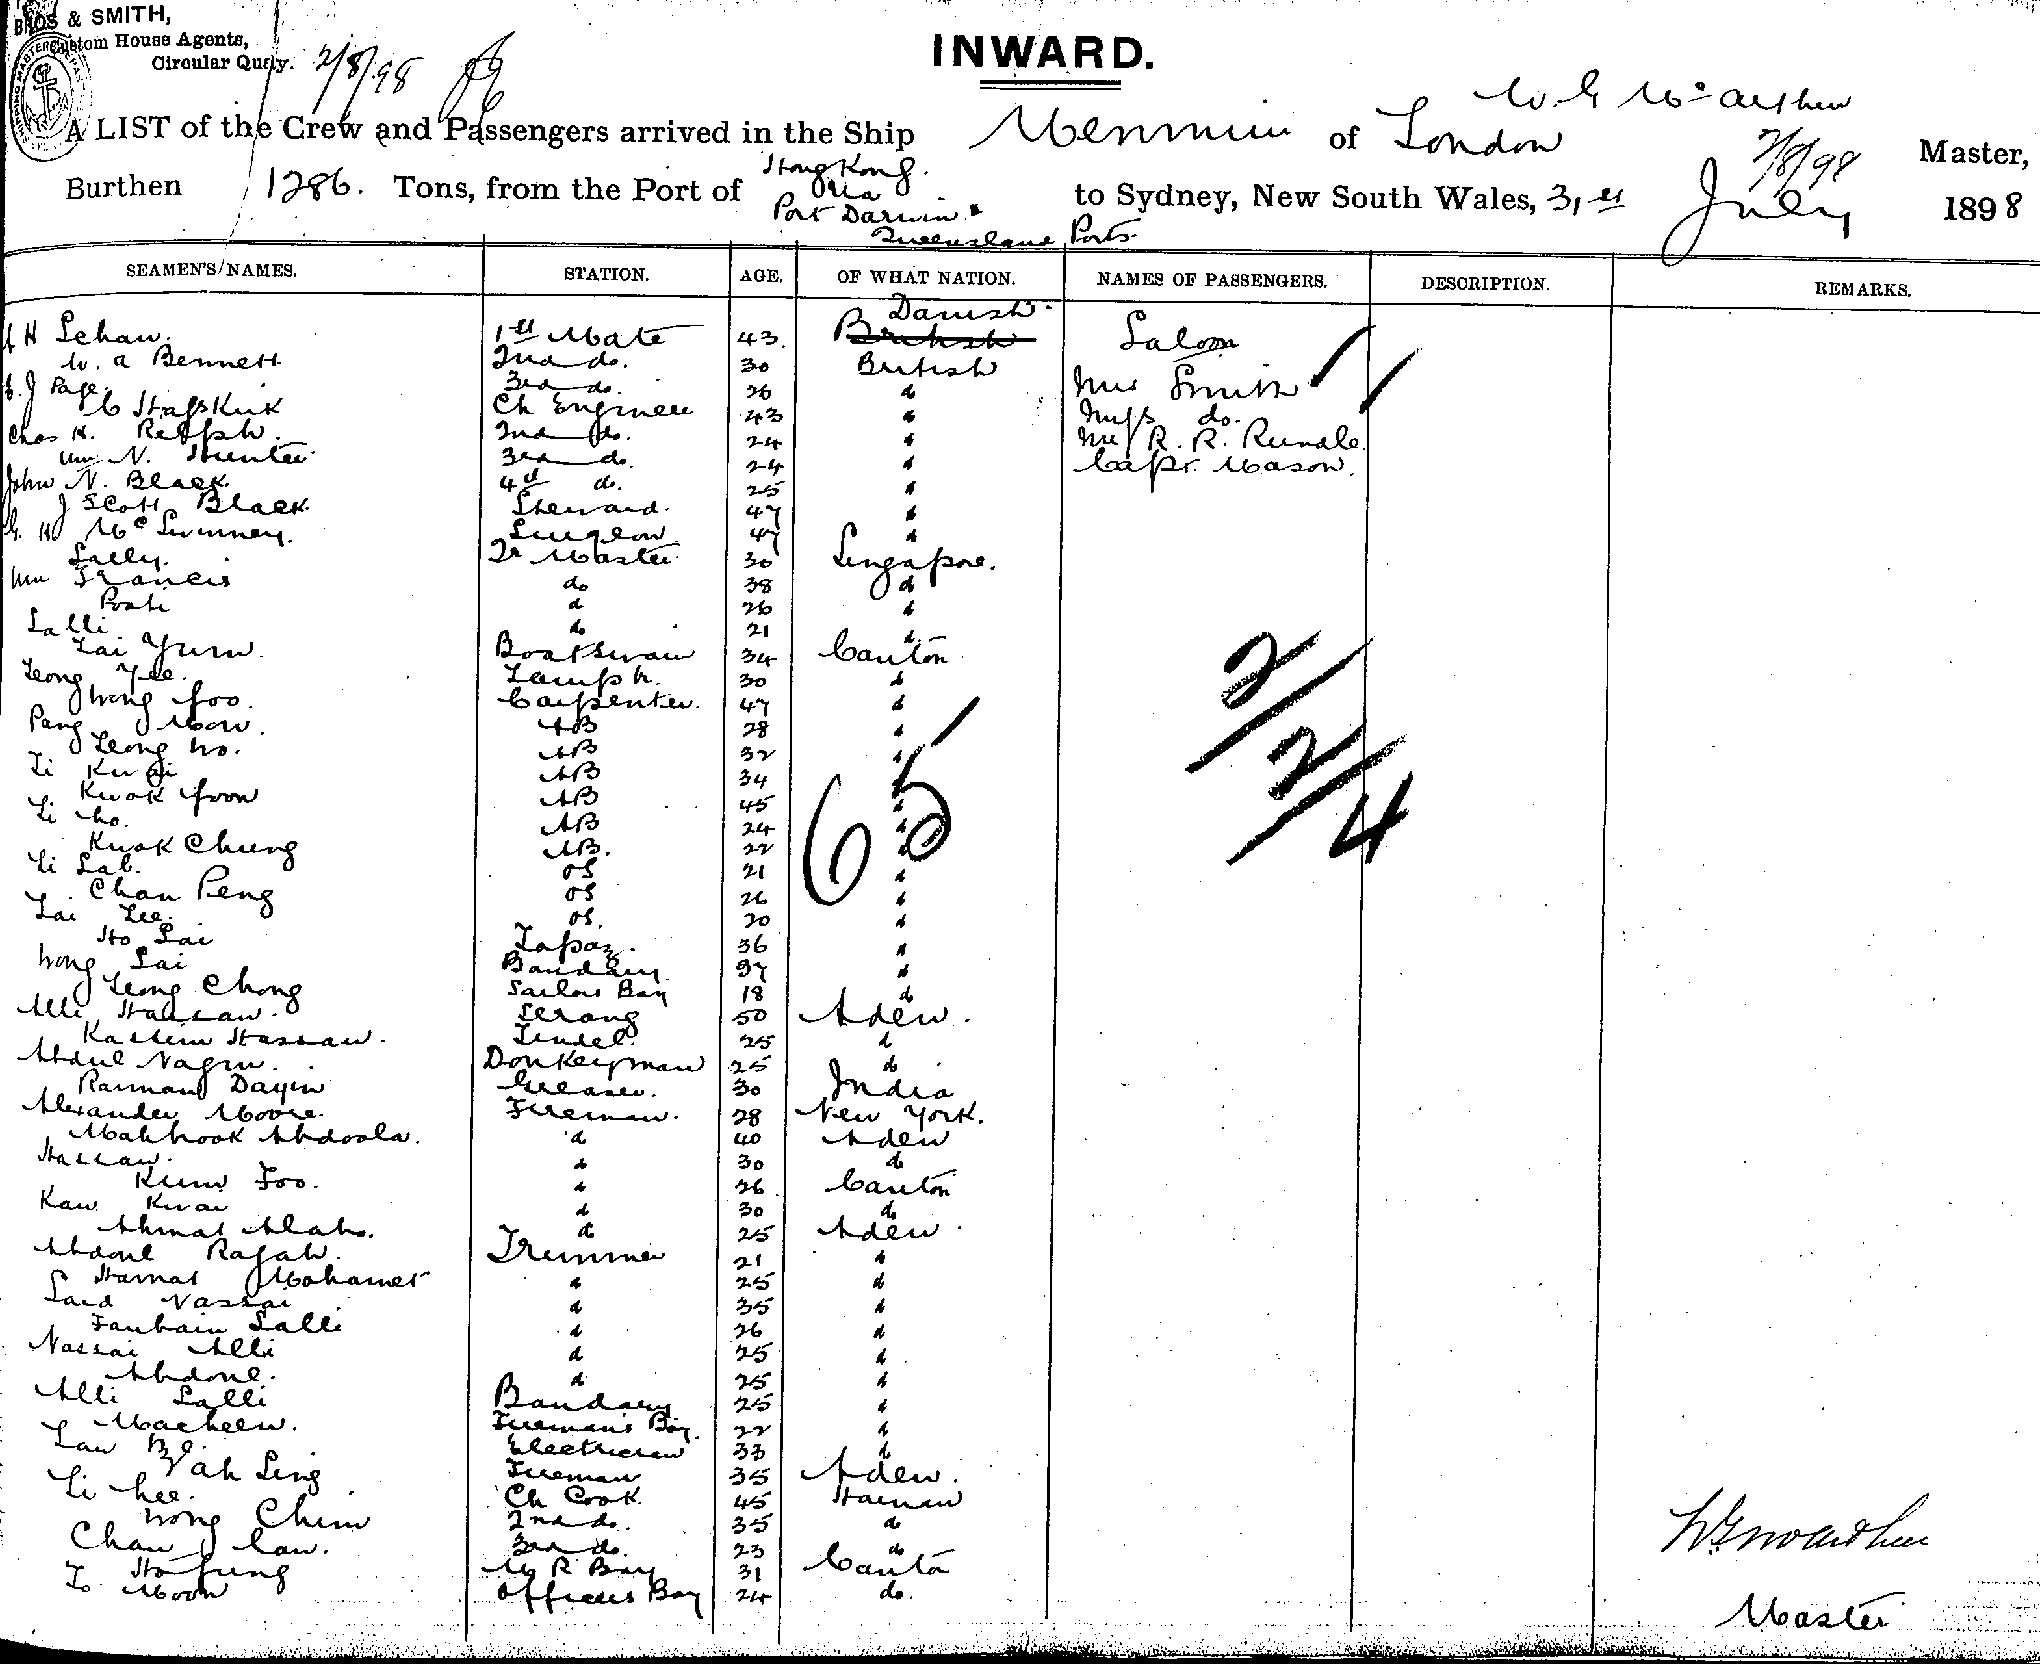 BROS & SMITH,
Custom House Agents,
Circular Quay. 2/8/98
INWARD.
W. G. McArthur
A LIST of the Crew and Passengers arrived in the Ship Menmuir of London 2/8/98 Master,
Burthen 1286. Tons, from the Port of Hong Kong via Port Darwin & Queensland Ports to Sydney, New South Wales, 31st July 1898
SEAMEN'S NAMES. STATION. AGE. OF WHAT NATION. NAMES OF PASSENGERS. DESCRIPTION. REMARKS.
Danish
H Schaw. 1st Mate 43. British Saloon
W. A Bennett 2nd do. 30 British Mrs Smith
J Page. 3rd do. 26 " Miss do.
Ch Engineer 43 " Mr R. R. Rundle
Chas H. Relph. 2nd do. 24 " Capt. Mason.
Wm N. Hunter 3rd do. 24 "
John N. Black 4th do. 25 "
J Scott Black Steward. 47 "
G. H McSwinney. Surgeon 47 "
Sally. Qr Master 30 Singapore.
Wm Francis do 38 do
Posti d 26 "
Salli do 21 do
Lai Yum Boatswain 34 Canton
Leong Yee. Lamp tr. 30 "
Wong Foo. Carpenter. 47 "
Pang Mow. AB 28 "
Leong Wo. AB 32 "
Li Kwai AB 34 "
Kwok Foon AB 45 "
Li Ho. AB 24 "
Kwok Chung AB. 22 "
Li Sab. OS 21 "
Chan Peng OS 26 "
Lai Lee. OS. 20 "
Ho Lai Topaz. 36 "
Wong Sai Bandary 37 "
Leong Chong Sailors Boy 18 do
Alli Hassan. Serang 50 Aden.
Kassim Hassan. Tindel. 25 d
Abdul Nagin. Donkeyman 25 do
Rauman Dayin Greaser. 30 India
Alexander Moore. Fireman. 28 New York.
Mahbook Abdoola. d 40 Aden
Hassan. " 30 do
Kum Foo. " 26 Canton
Kaw Kwai d 30 do
Ahmat Alah. d 25 Aden.
Abdoul Rajah. Trimmer 21 "
Hamat Mohamet " 25 d
Said Nassai d 35 "
Salli d 26 d
Nassai Alli d 25 "
Abdoul. d 25 "
Alli Salli Bandary 25 "
Macheen. Fireman's Boy. 22 "
Electrician 33 do
Yah Sing Fireman 35 Aden.
Li Chee. Ch Cook 45 Hainan
Wong Chim 2nd do. 35 do
Chan Caw. 3rd do. 23 do
Ho Fung M R Boy 31 Canton
Lo Moon Officers Boy 24 do.
65
2/
2/
4
W G McArthur
Master